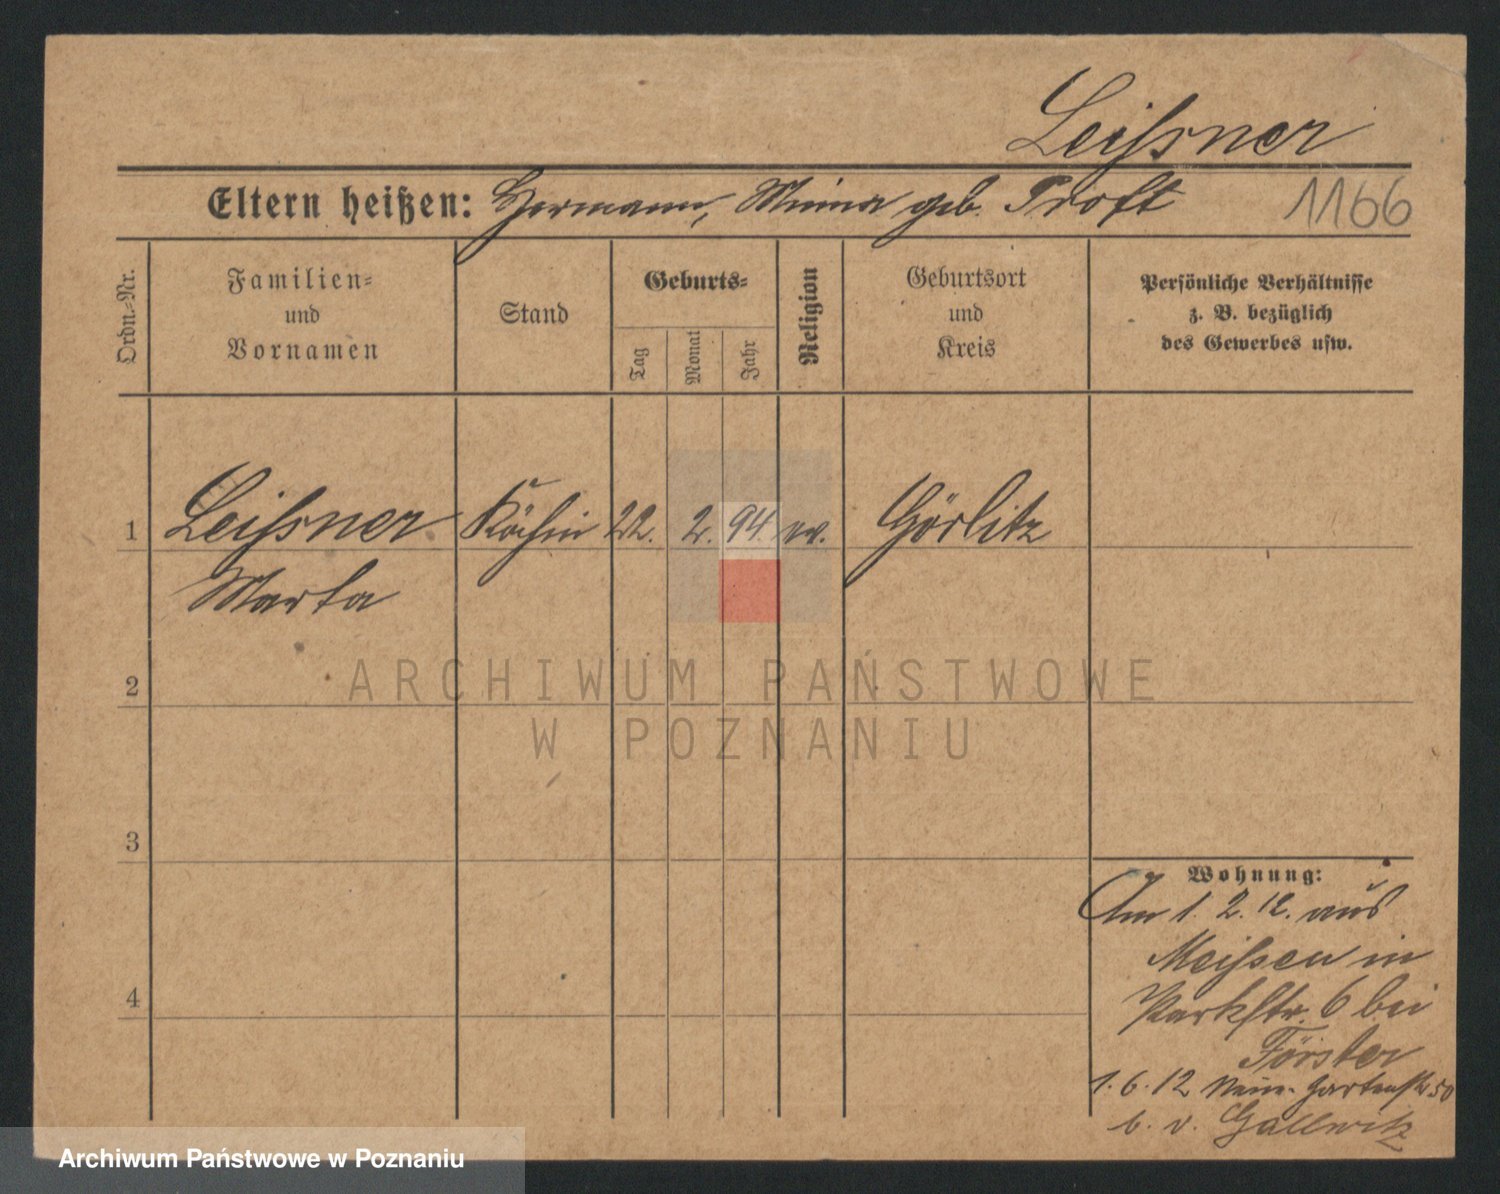 Leißner
Eltern heißen: Hermann, Minna geb. Troft
1166
Ordn.-Nr.
Familien-
und
Vornamen
Stand
Geburts-
Tag
Monat
Jahr
Religion
Geburtsort
und
Kreis
Persönliche Verhältnisse
z. B. bezüglich
des Gewerbes usw.
1 Leißner Köchin 22. 2. 94. ev. Görlitz
Marta
ARCHIWUM PAŃSTWOWE
W POZNANIU
2
3
4
Wohnung:
Am 1. 2. 12. aus
Meißen in
Parkstr. 6 bei
Förster
1. 6. 12 Gartenstr 50
b. v. Gallwitz
Archiwum Państwowe w Poznaniu